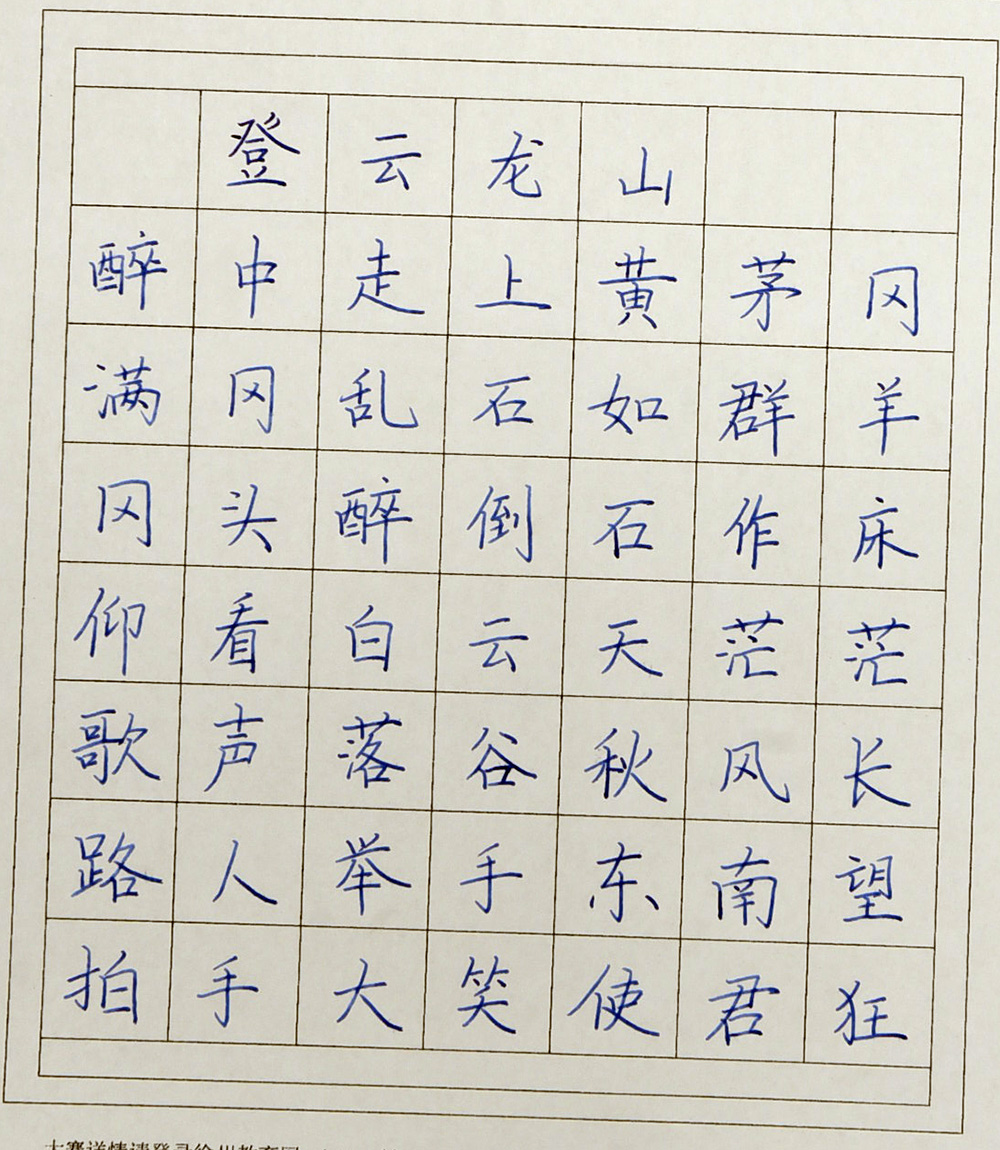 登云龙山
醉中走上黄茅冈
满冈乱石如群羊
冈头醉倒石作床
仰看白云天茫茫
歌声落谷秋风长
路人举手东南望
拍手大笑使君狂
大赛详情请登录徐州教育网